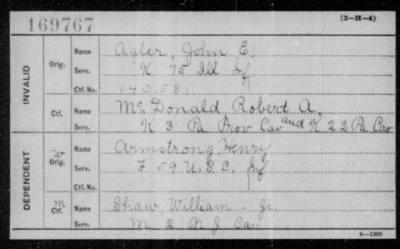 169767 (3-H-4)
INVALID
Orig. Name Agler, John E.
Serv. K 75 Ill Inf
Ctf. No. 170.581
Ctf. Name McDonald Robert A.
Serv. K 3 Pa Prov Cav and K 22 Pa Cav
DEPENDENT
Orig. Name Armstrong, Henry
Serv. F 59 U.S.C. Inf
Ctf. No.
Ctf. Name Shaw, William Jr.
Serv. M 2 N J Cav